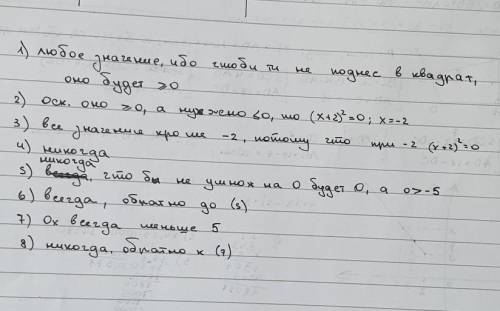 1) любое значение, ибо чтоби ти не поднес в квадрат,
оно будет ≥0
2) оск. оно ≥0, а нужено ≤0, то (x+2)²=0; x=-2
3) все значение кроме -2, потому что при -2 (x+2)²=0
4) никогда
никогда
5) всегда, что бы не умнож на 0 будет 0, а 0>-5
6) всегда, обратно до (5)
7) 0x всегда меньше 5
8) никогда, обратно к (7)